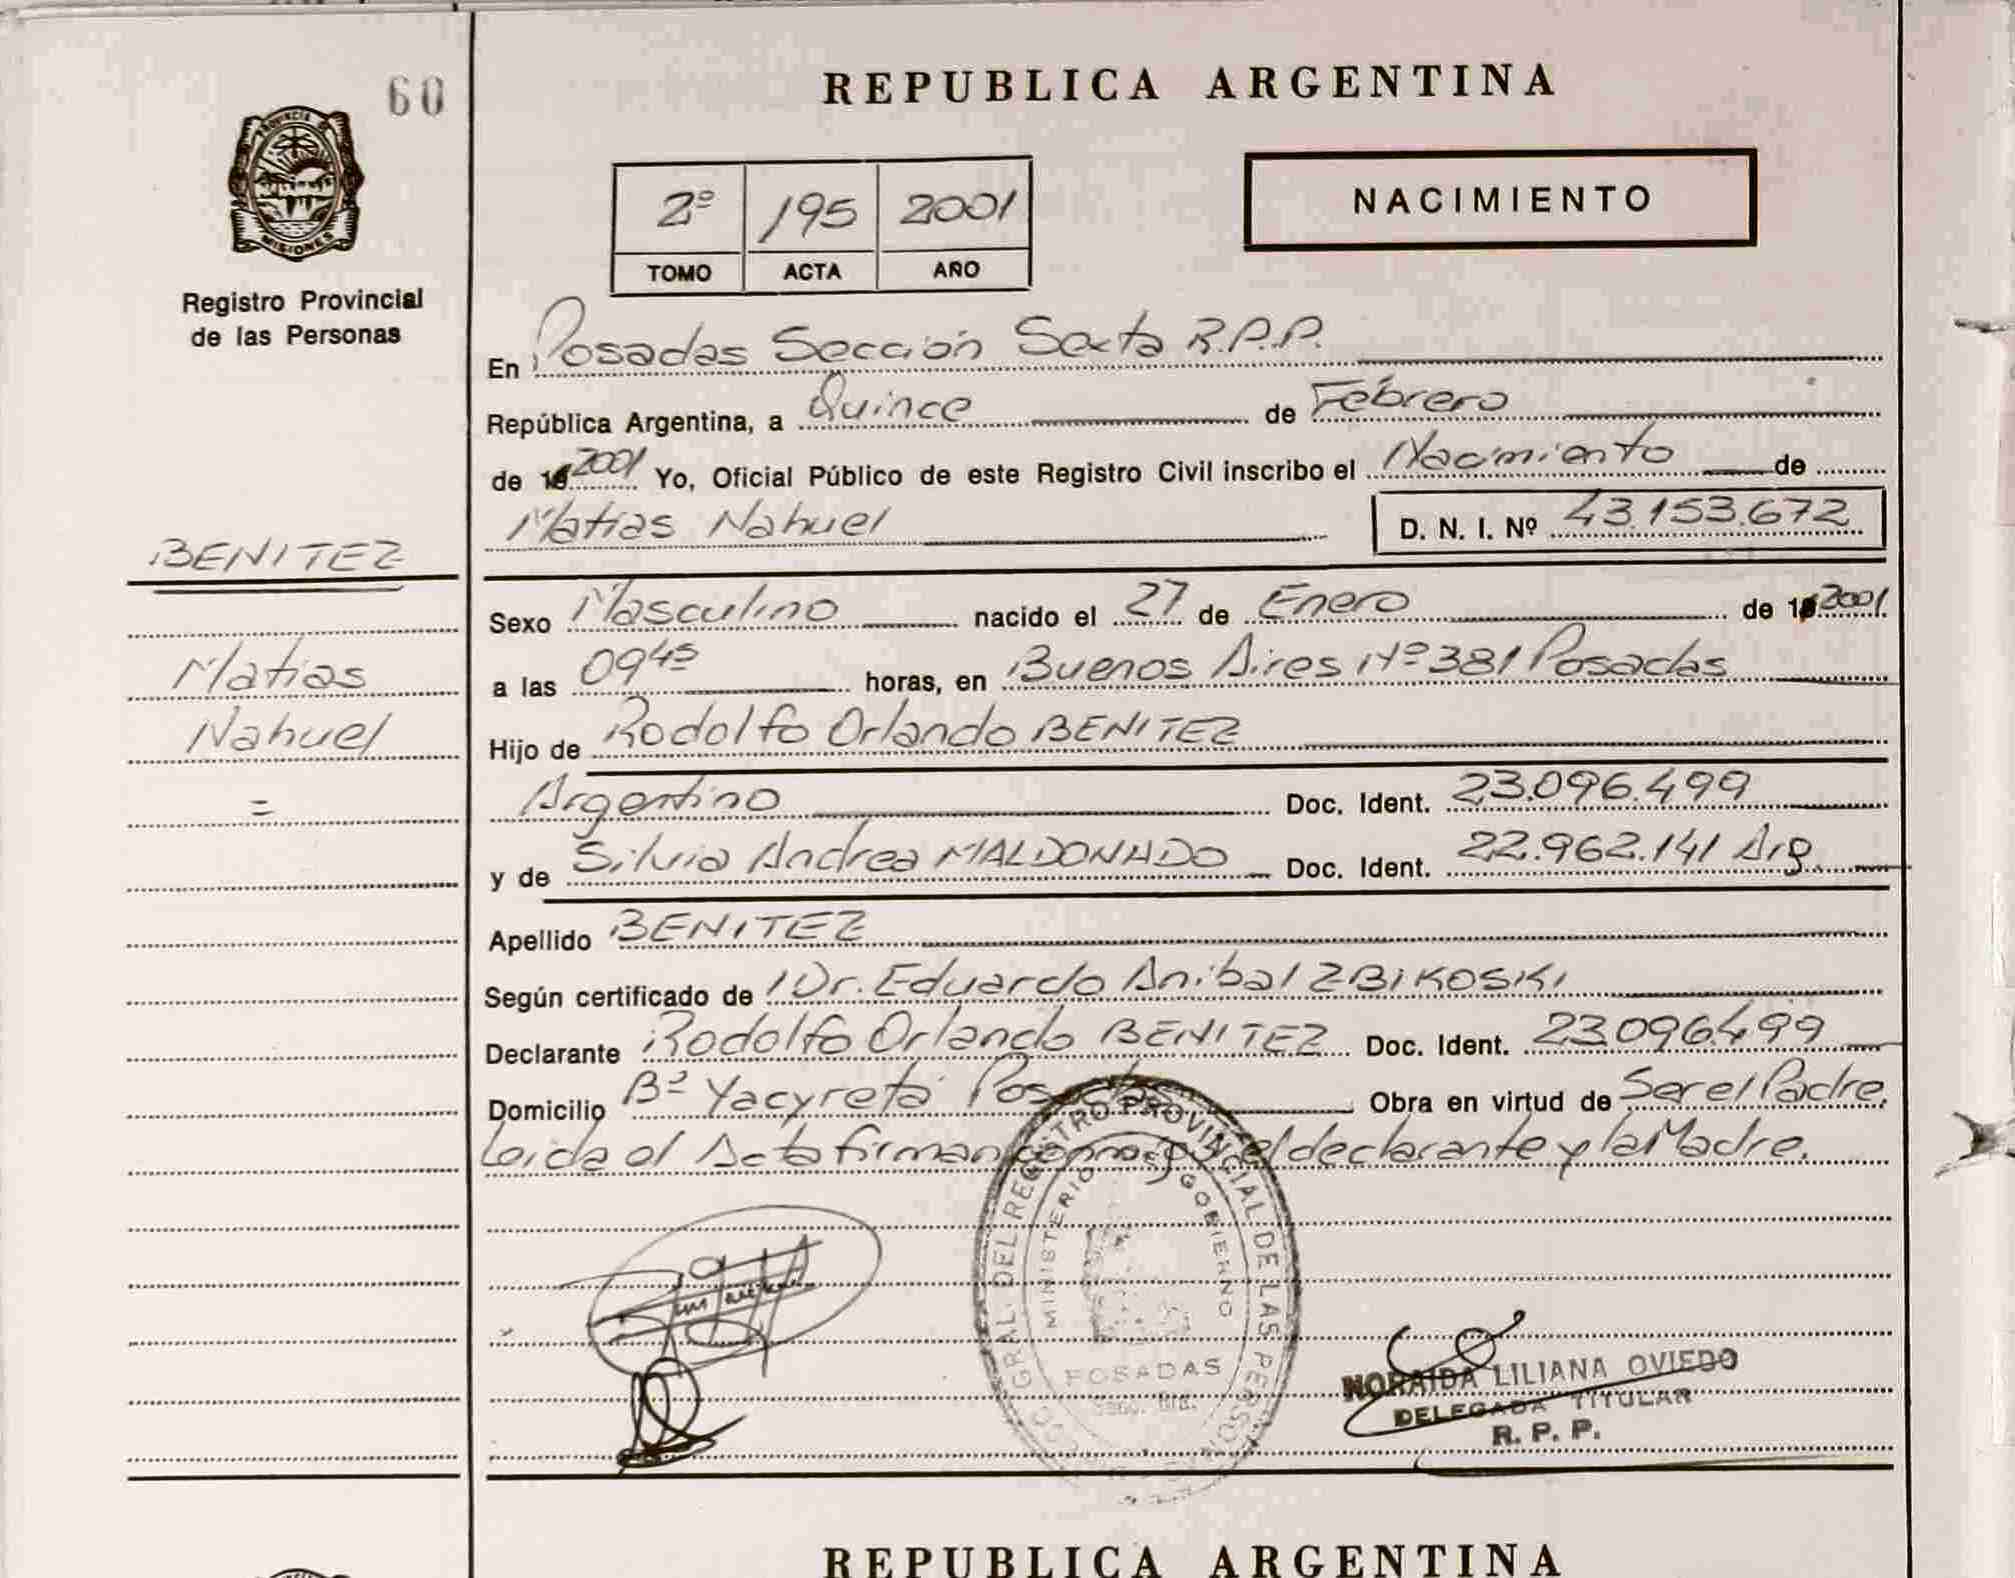 60
PROVINCIA DE
MISIONES
Registro Provincial
de las Personas
BENITEZ
Matias
Nahuel
=
REPUBLICA ARGENTINA
2º 195 2001
TOMO ACTA AÑO
NACIMIENTO
En Posadas Sección Sexta R.P.P.
República Argentina, a Quince de Febrero
de 2001 Yo, Oficial Público de este Registro Civil inscribo el Nacimiento de
Matias Nahuel D. N. I. Nº 43.153.672
Sexo Masculino nacido el 27 de Enero de 2001
a las 09 45 horas, en Buenos Aires Nº 381 Posadas
Hijo de Rodolfo Orlando BENITEZ
Argentino Doc. Ident. 23.096.499
y de Silvia Andrea MALDONADO Doc. Ident. 22.962.141 Arg.
Apellido BENITEZ
Según certificado de Dr. Eduardo Anibal ZBIKOSKI
Declarante Rodolfo Orlando BENITEZ Doc. Ident. 23.096.499
Domicilio Bº Yacyretá Posadas Obra en virtud de Ser el Padre.
Leida el Acta firman el declarante y la Madre.
GRAL. DEL REGISTRO PROVINCIAL DE LAS PERSONAS
MINISTERIO DE GOBIERNO
POSADAS
NORAIDA LILIANA OVIEDO
DELEGADA TITULAR
R. P. P.
REPUBLICA ARGENTINA